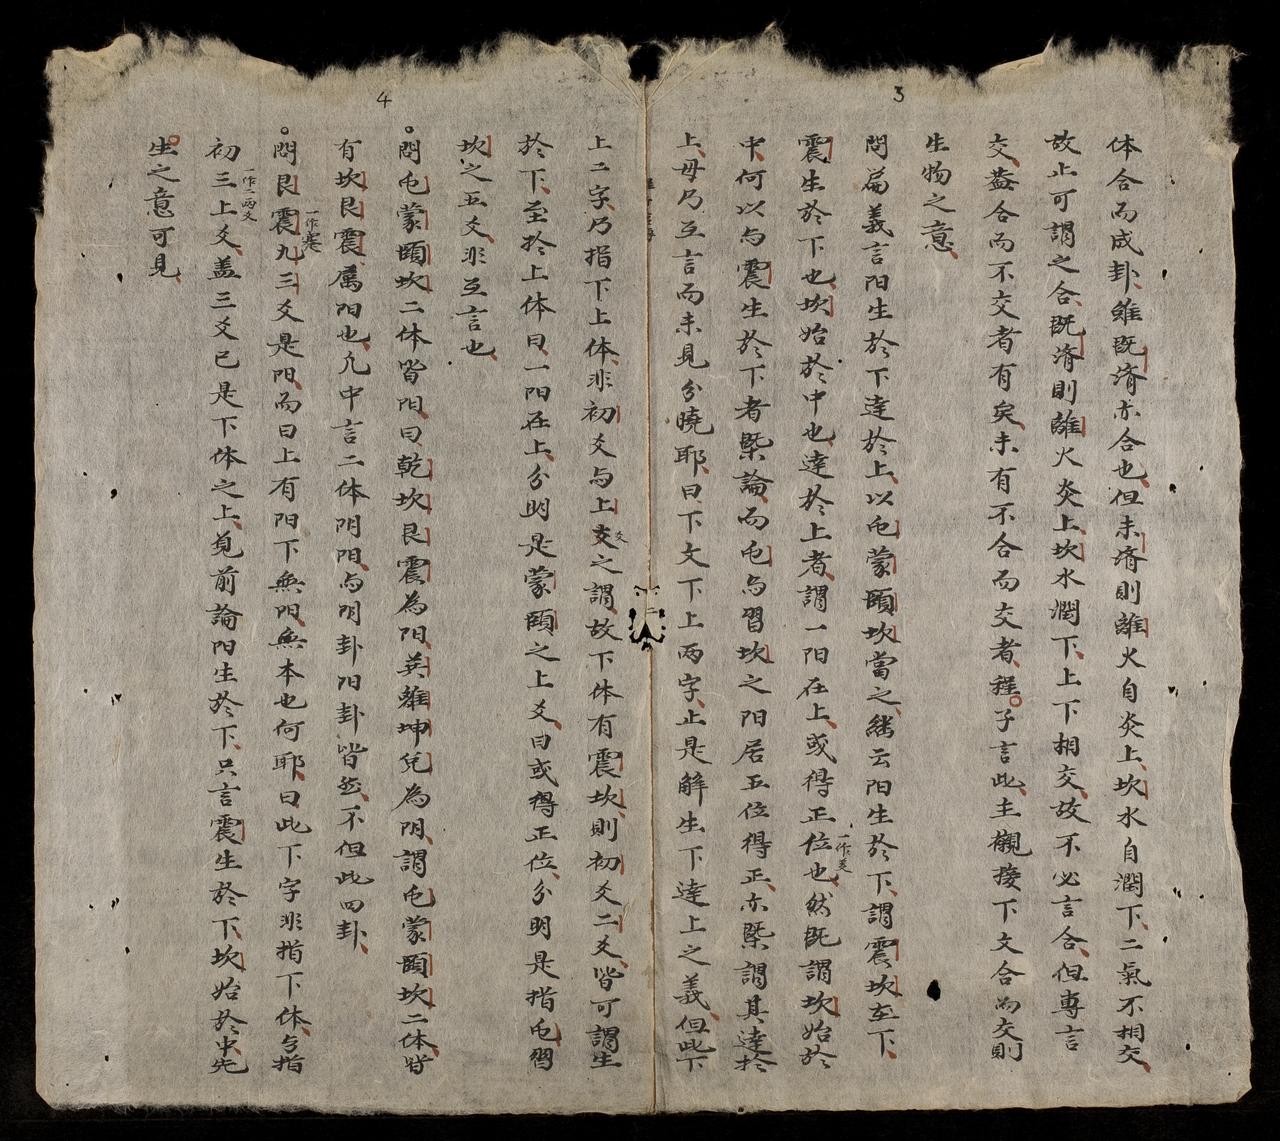 3
体合而成卦雖既済亦合也但未済則離火自炎上坎水自潤下二氣不相交
故止可謂之合既済則離火炎上坎水潤下上下相交故不必言合但專言
交葢合而不交者有矣未有不合而交者程子言此主襯接下文合而交則
生物之意
問篇義言阳生於下達於上以屯蒙頤坎當之継云阳生於下謂震坎在下
震生於下也坎始於中也達於上者謂一阳在上或得正位也然既謂坎始於
一作矣
中何以与震生於下者槩論而屯与習坎之阳居五位得正亦槩謂其達於
上毋乃互言而未見分曉耶曰下文下上两字止是解生下達上之義但此下
4
上二字乃指下上体非初爻与上爻之謂故下体有震坎則初爻二爻皆可謂生
於下至於上体曰一阳在上分明是蒙頤之上爻曰或得正位分明是指屯習
坎之五爻非互言也
問屯蒙頤坎二体皆阳曰乾坎艮震為阳巽離坤兌為阴謂屯蒙頤坎二体皆
有坎艮震属阳也凡中言二体阴阳与阴卦阳卦皆然不但此四卦
一作蹇
問艮震九三爻是阳而曰上有阳下無阳無本也何耶曰此下字非指下体与指
一作二两爻
初三上爻盖三爻已是下体之上見前論阳生於下只言震生於下坎始於中先
生之意可見